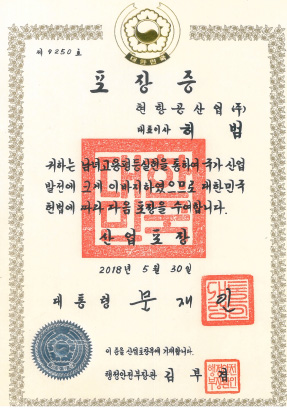 제 9250 호
대한민국
포장증
현항공산업(주)
대표이사 허 범
귀하는 남녀고용평등실현을 통하여 국가 산업
발전에 크게 이바지하였으므로 대한민국
헌법에 따라 다음 포장을 수여합니다.
산업포장
2018년 5월 30일
대통령 문재인
이 증을 산업포장부에 기재합니다.
행정안전부장관 김부겸